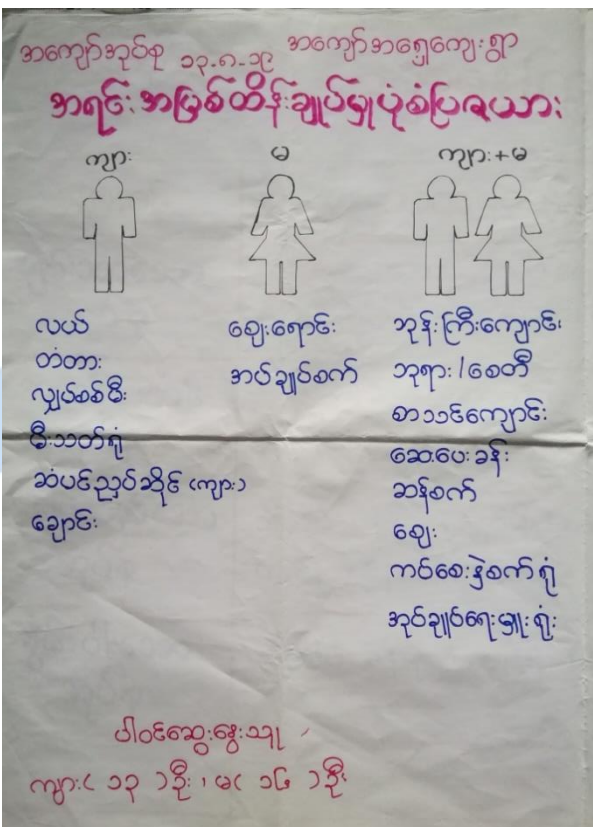 အကျော်အုပ်စု ၁၃-၈-၁၉ အကျော်အရှေ့ကျေးရွာ
အရင်းအမြစ်ထိန်းချုပ်မှုပုံစံပြဇယား
ကျား
မ
ကျား+မ
လယ်
တံတား
လျှပ်စစ်မီး
မီးသတ်ရုံ
ဆံပင်ညှပ်ဆိုင် (ကျား)
ချောင်း
ဈေးရောင်း
အပ်ချုပ်စက်
ဘုန်းကြီးကျောင်း
ဘုရား/စေတီ
စာသင်ကျောင်း
ဆေးပေးခန်း
ဆန်စက်
ဈေး
ကပ်စေးနှဲစက်ရုံ
အုပ်ချုပ်ရေးမှူးရုံး
ပါဝင်ဆွေးနွေးသူ
ကျား( ၁၃ )ဦး ၊ မ( ၁၆ )ဦး